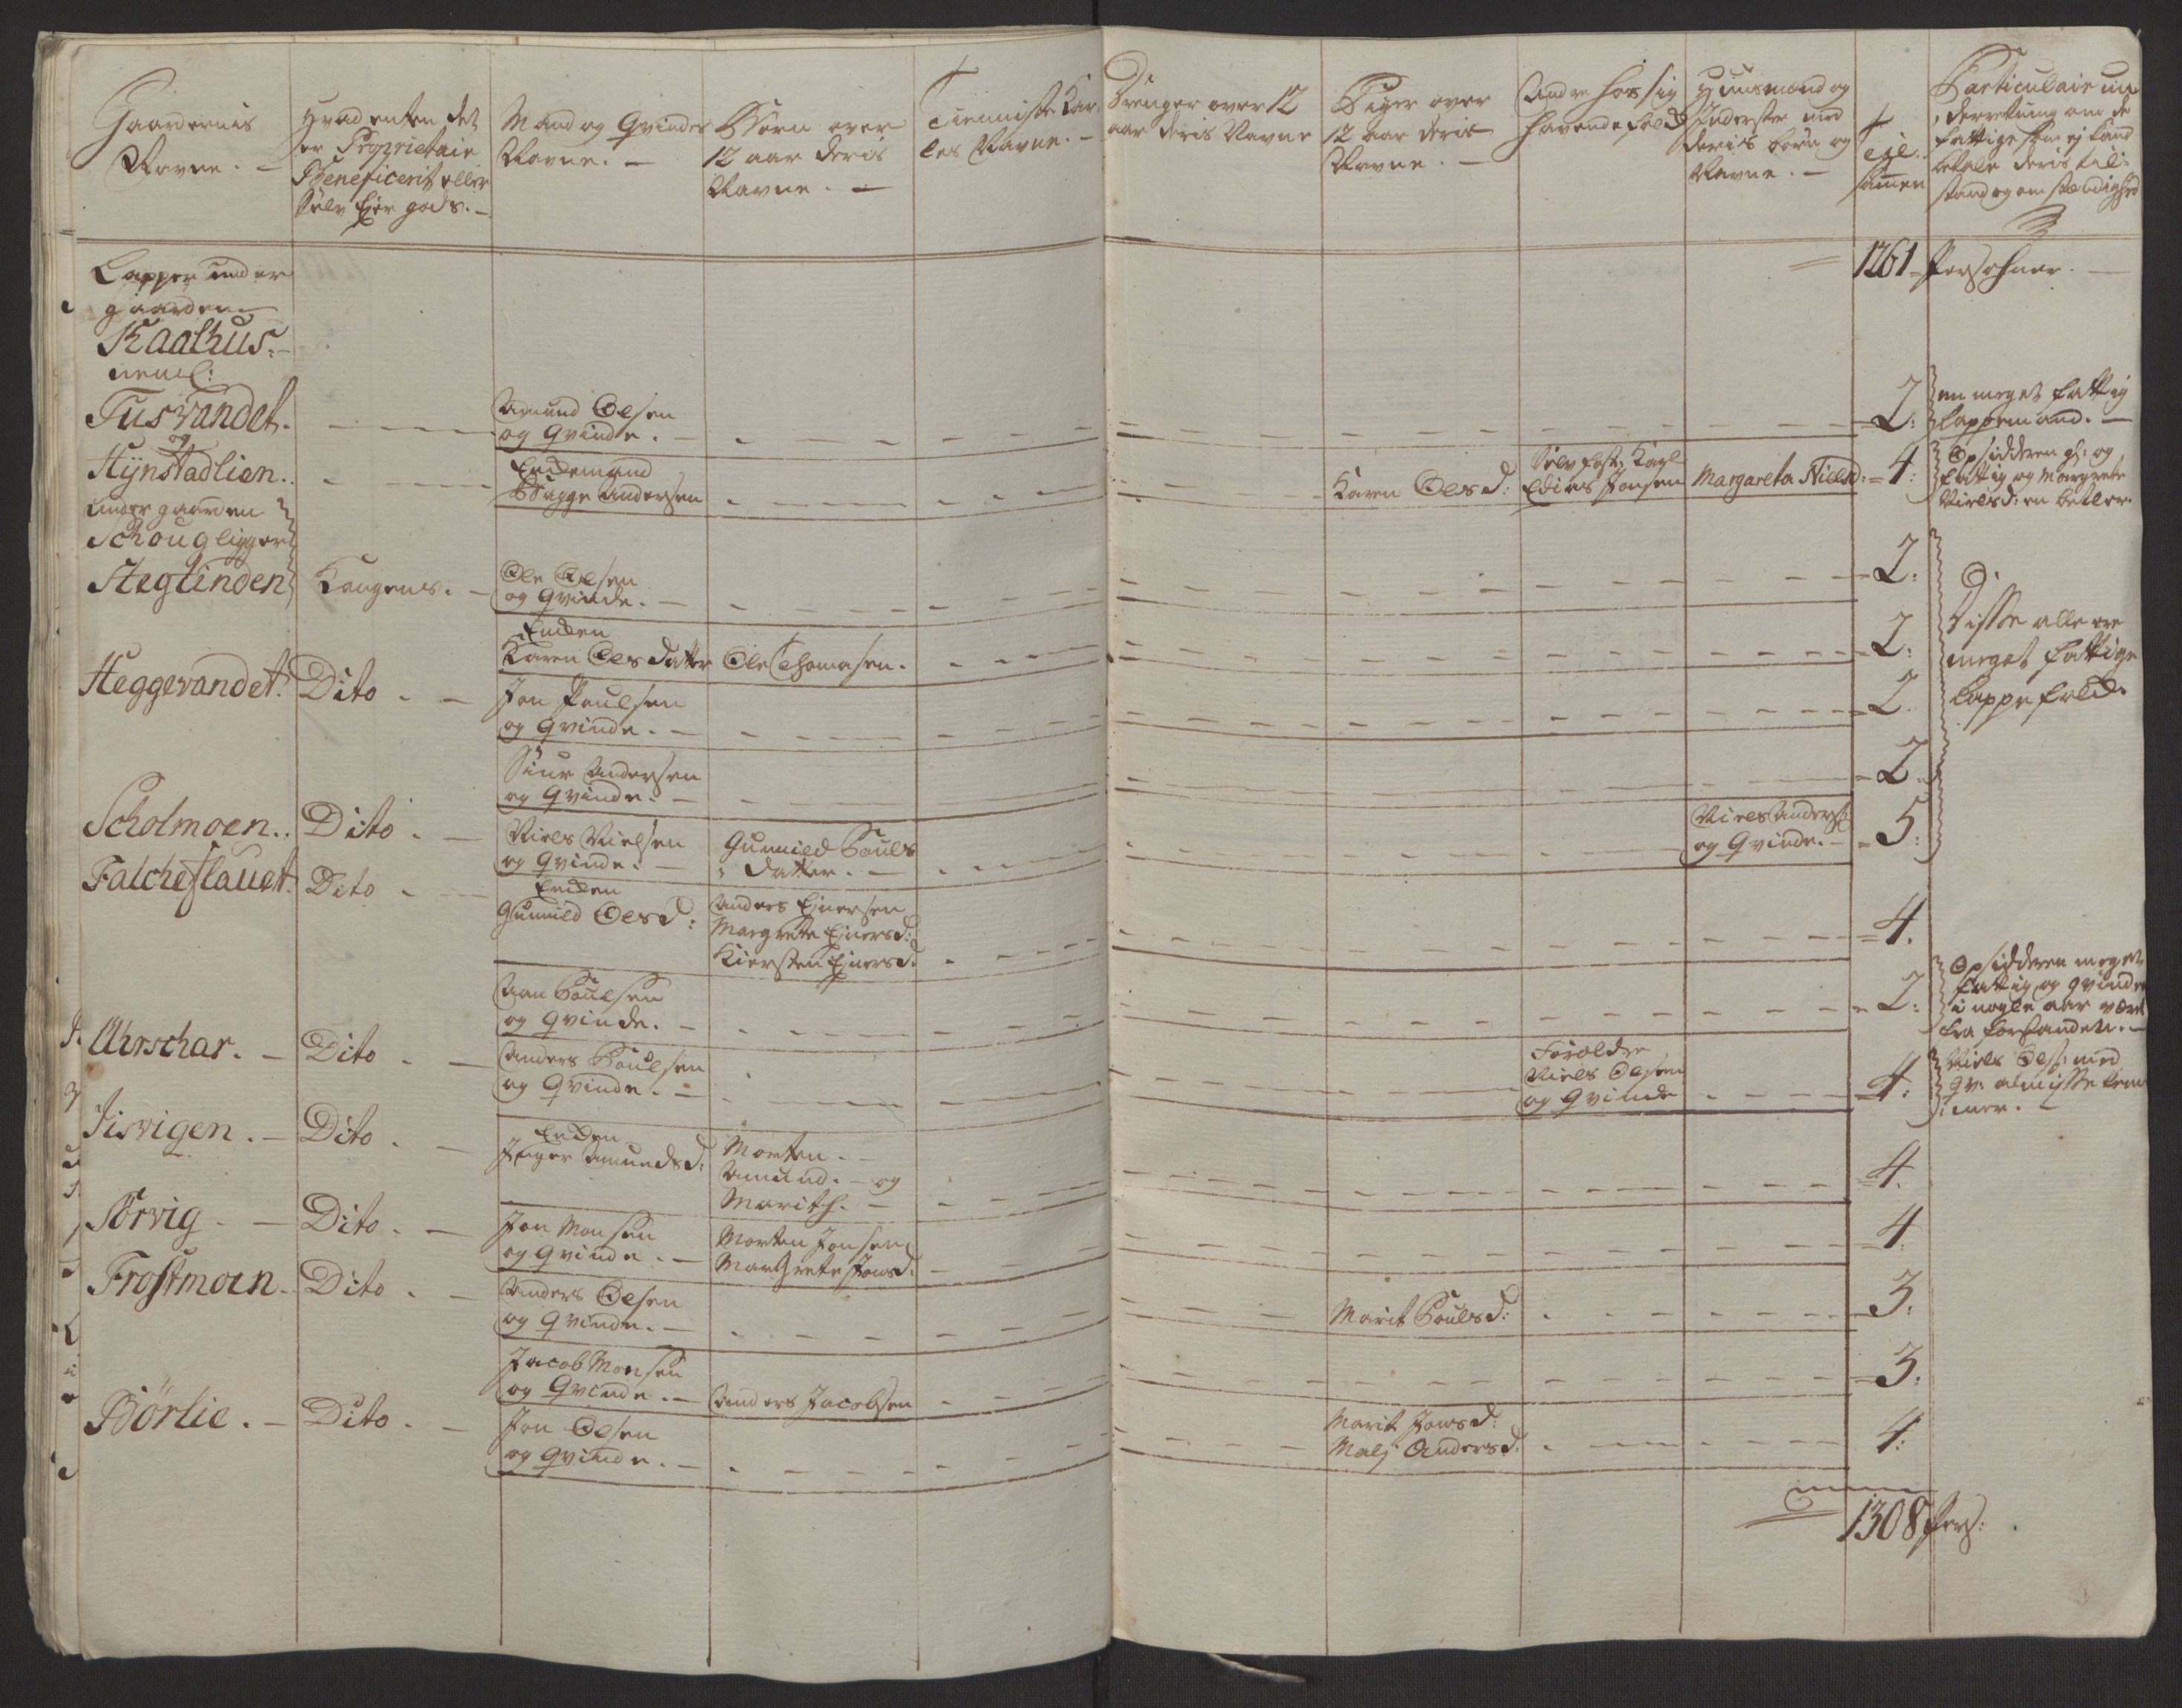 Gaardernis
Navne. -
Hvad enten det
er Proprietair
Beneficerit eller
Selv Ejer gods. -
Mand og Qvindes
Navne. -
Børn over
12 aar deris
Navne. -
Tienniste Kar
les Navne. -
Drenger over 12
aar deris Navne
Piger over
12 aar deris
Navne. -
Andre hos sig
havende folck
Huusmænd og
Inderster med
deris børn og
Navne. -
til
samen
Particulair un
derretning om de
fattige som ej kand
betale deris til-
stand og omstændighed
Lapper under
gaarden
Kaalhus. -
neml:
1261 Persohner. -
Fusvandet. -
Amund Olsen
og Qvinde. -
2:
en meget fattig
Lappemand. -
og
Hÿnstadlien.
under gaarden
Schoug ligger
Enckemand
Bugge Andersen
Karen Olsd:
Selv fost: Karl
Edias Jonsen
Margareta Nielsd:
4:
Opsidderen gl: og
fattig og Margrete
Nielsd: en betler.
Steglinden
Kongens. -
Ole Olsen
og Qvinde. -
2:
Disse alle ere
meget fattige
Lappe folck.
Encken
Karen Olsdatter
Ole Thomasen.
2:
Heggevandet.
Dito. -
Jon Poulsen
og Qvinde. -
2
Siur Andersen
og Qvinde. -
2
Scholmoen.
Dito. -
Niels Nielsen
og Qvinde. -
Gunnild Pouls
datter. -
Niels Anders:
og Qvinde. -
5:
Falcheflauet.
Dito. -
Encken
Gunnild Olsd:
Anders Ejnersen
Margrete Ejnersd:
Kiersten Ejnersd.
4.
Aan Poulsen
og Qvinde. -
2:
Opsidderen meget
fattig og Qvinden
i nogle aar været
fra forstanden. -
Uhrschar. -
Dito. -
Anders Poulsen
og Qvinde. -
Forældre
Niels Olsen
og Qvinde
4:
Niels Ols: med
Qv: almisse lem
mer. -
Iisvigen. -
Dito. -
Encken
Inger Amundsd:
Morten. -
Amund. - og
Marith. -
4.
Sörvig. -
Dito. -
Jon Monsen
og Qvinde. -
Morten Jonsen
Margrete Jonsd:
4.
Frostmoen.
Dito. -
Anders Olsen
og Qvinde. -
Marit Poulsd:
3.
Jacob Monsen
og Qvinde. -
Anders Jacobsen
3.
Börlie. -
Dito. -
Jon Olsen
og Qvinde. -
Marit Jonsd:
Malj Andersd.
4:
1308 Pers: